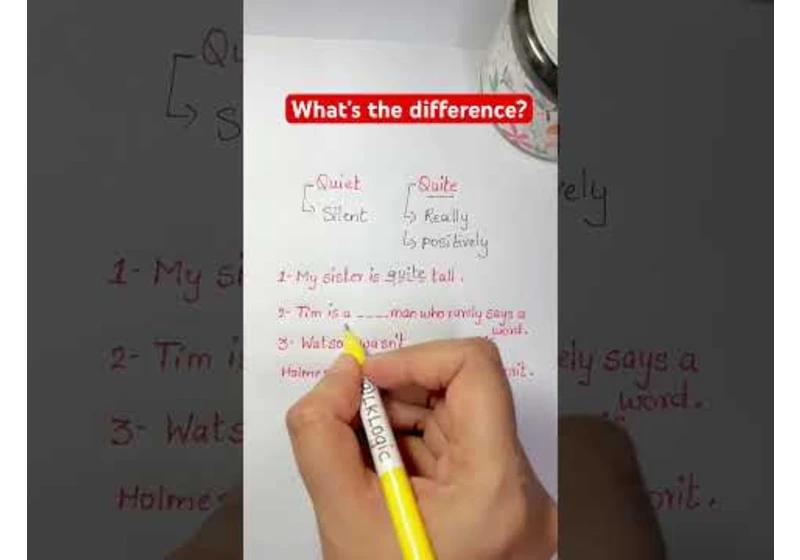 What's the difference?
Quiet Quite
Silent Really
positively
1- My sister is quite tall.
2- Tim is a ____ man who rarely says a
word.
3- wasn't
Holmes
LKLogic